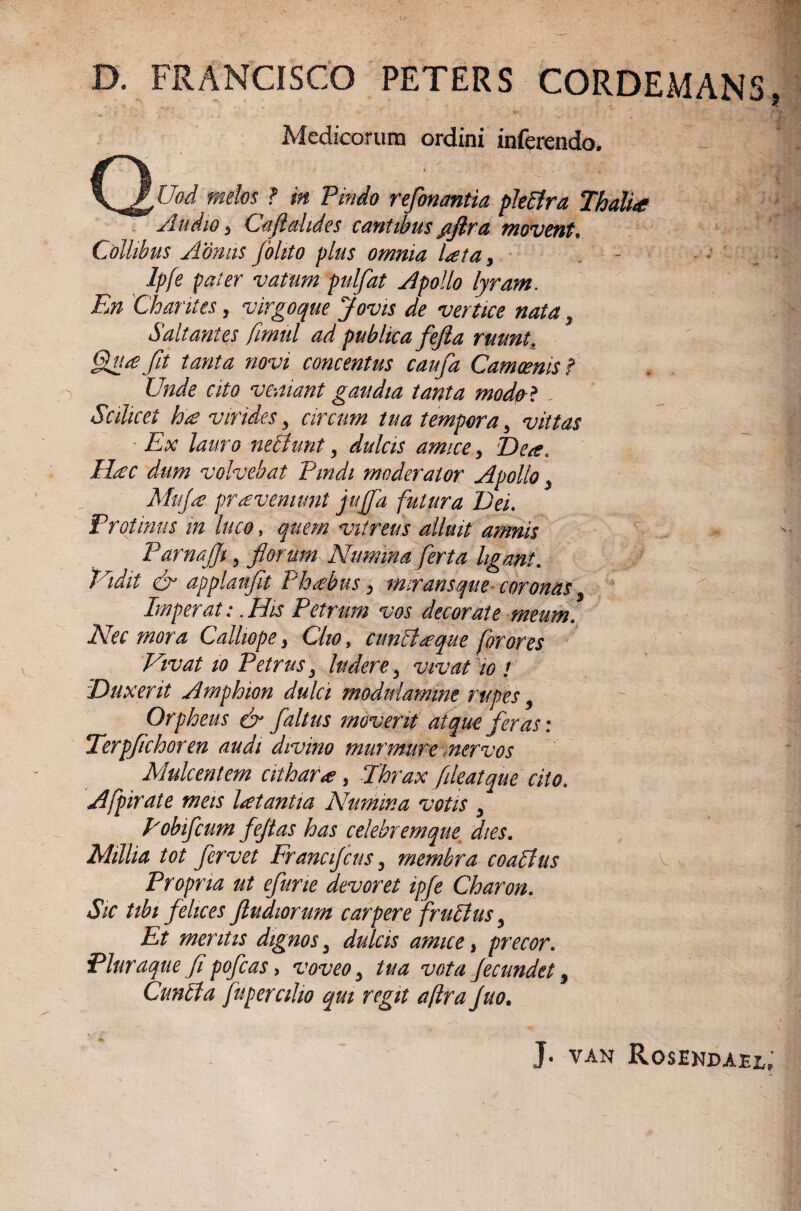 D. FRANCISCO PETERS CORDEMANS,
Medicorum ordini inferendo.
QUod melos ? in Pindo reſonantia plectra Thaliæ
Audio, Caſtalides cantibus aſtra movent.
Collibus Aöniis ſolito plus omnia læta,
Ipſe pater vatum pulſat Apollo lyram.
En Charites, virgoque Jovis de vertice nata,
Saltantes ſimul ad publica feſta ruunt.
Quæ ſit tanta novi concentus cauſa Camœnis ?
Unde cito veniant gaudia tanta modo ?
Scilicet hæ virides, circum tua tempora, vittas
Ex lauro nectunt, dulcis amice, Deæ.
Hæc dum volvebat Pindi moderator Apollo,
Muſæ præveniunt juſſa futura Dei.
Protinus in luco, quem vitreus alluit amnis
Parnaſſi, florum Numina ſerta ligant.
Vidit & applauſit Phœbus, miransque coronas,
Imperat: .His Petrum vos decorate meum.
Nec mora Calliope, Clio, cunctæque ſorores
Vivat io Petrus, ludere, vivat io !
Duxerit Amphion dulci modulamine rupes,
Orpheus & ſaltus moverit atque feras:
Terpſichoren audi divino murmure nervos
Mulcentem citharæ, Thrax ſileatque cito.
Aſpirate meis lætantia Numina votis,
Vobiſcum feſtas has celebremque dies.
Millia tot fervet Franciſcus, membra coactus
Propria ut eſurie devoret ipſe Charon.
Sic tibi felices ſtudiorum carpere fructus,
Et meritis dignos, dulcis amice, precor.
Pluraque ſi poſcas, voveo, tua vota ſecundet,
Cuncta ſupercilio qui regit aſtra ſuo.
J. VAN ROSENDAEL,